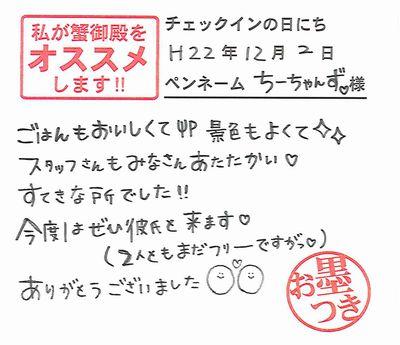 私が蟹御殿を
オススメ
します!!
チェックインの日にち
H22年12月2日
ペンネーム ちーちゃんず♡様
ごはんもおいしくて 景色もよくて✧✧
スタッフさんもみなさんあたたかい♡
すてきな所でした!!
今度はぜひ彼氏と来ます♡
(2人ともまだフリーですがっ♡)
ありがとうございました
お墨つき